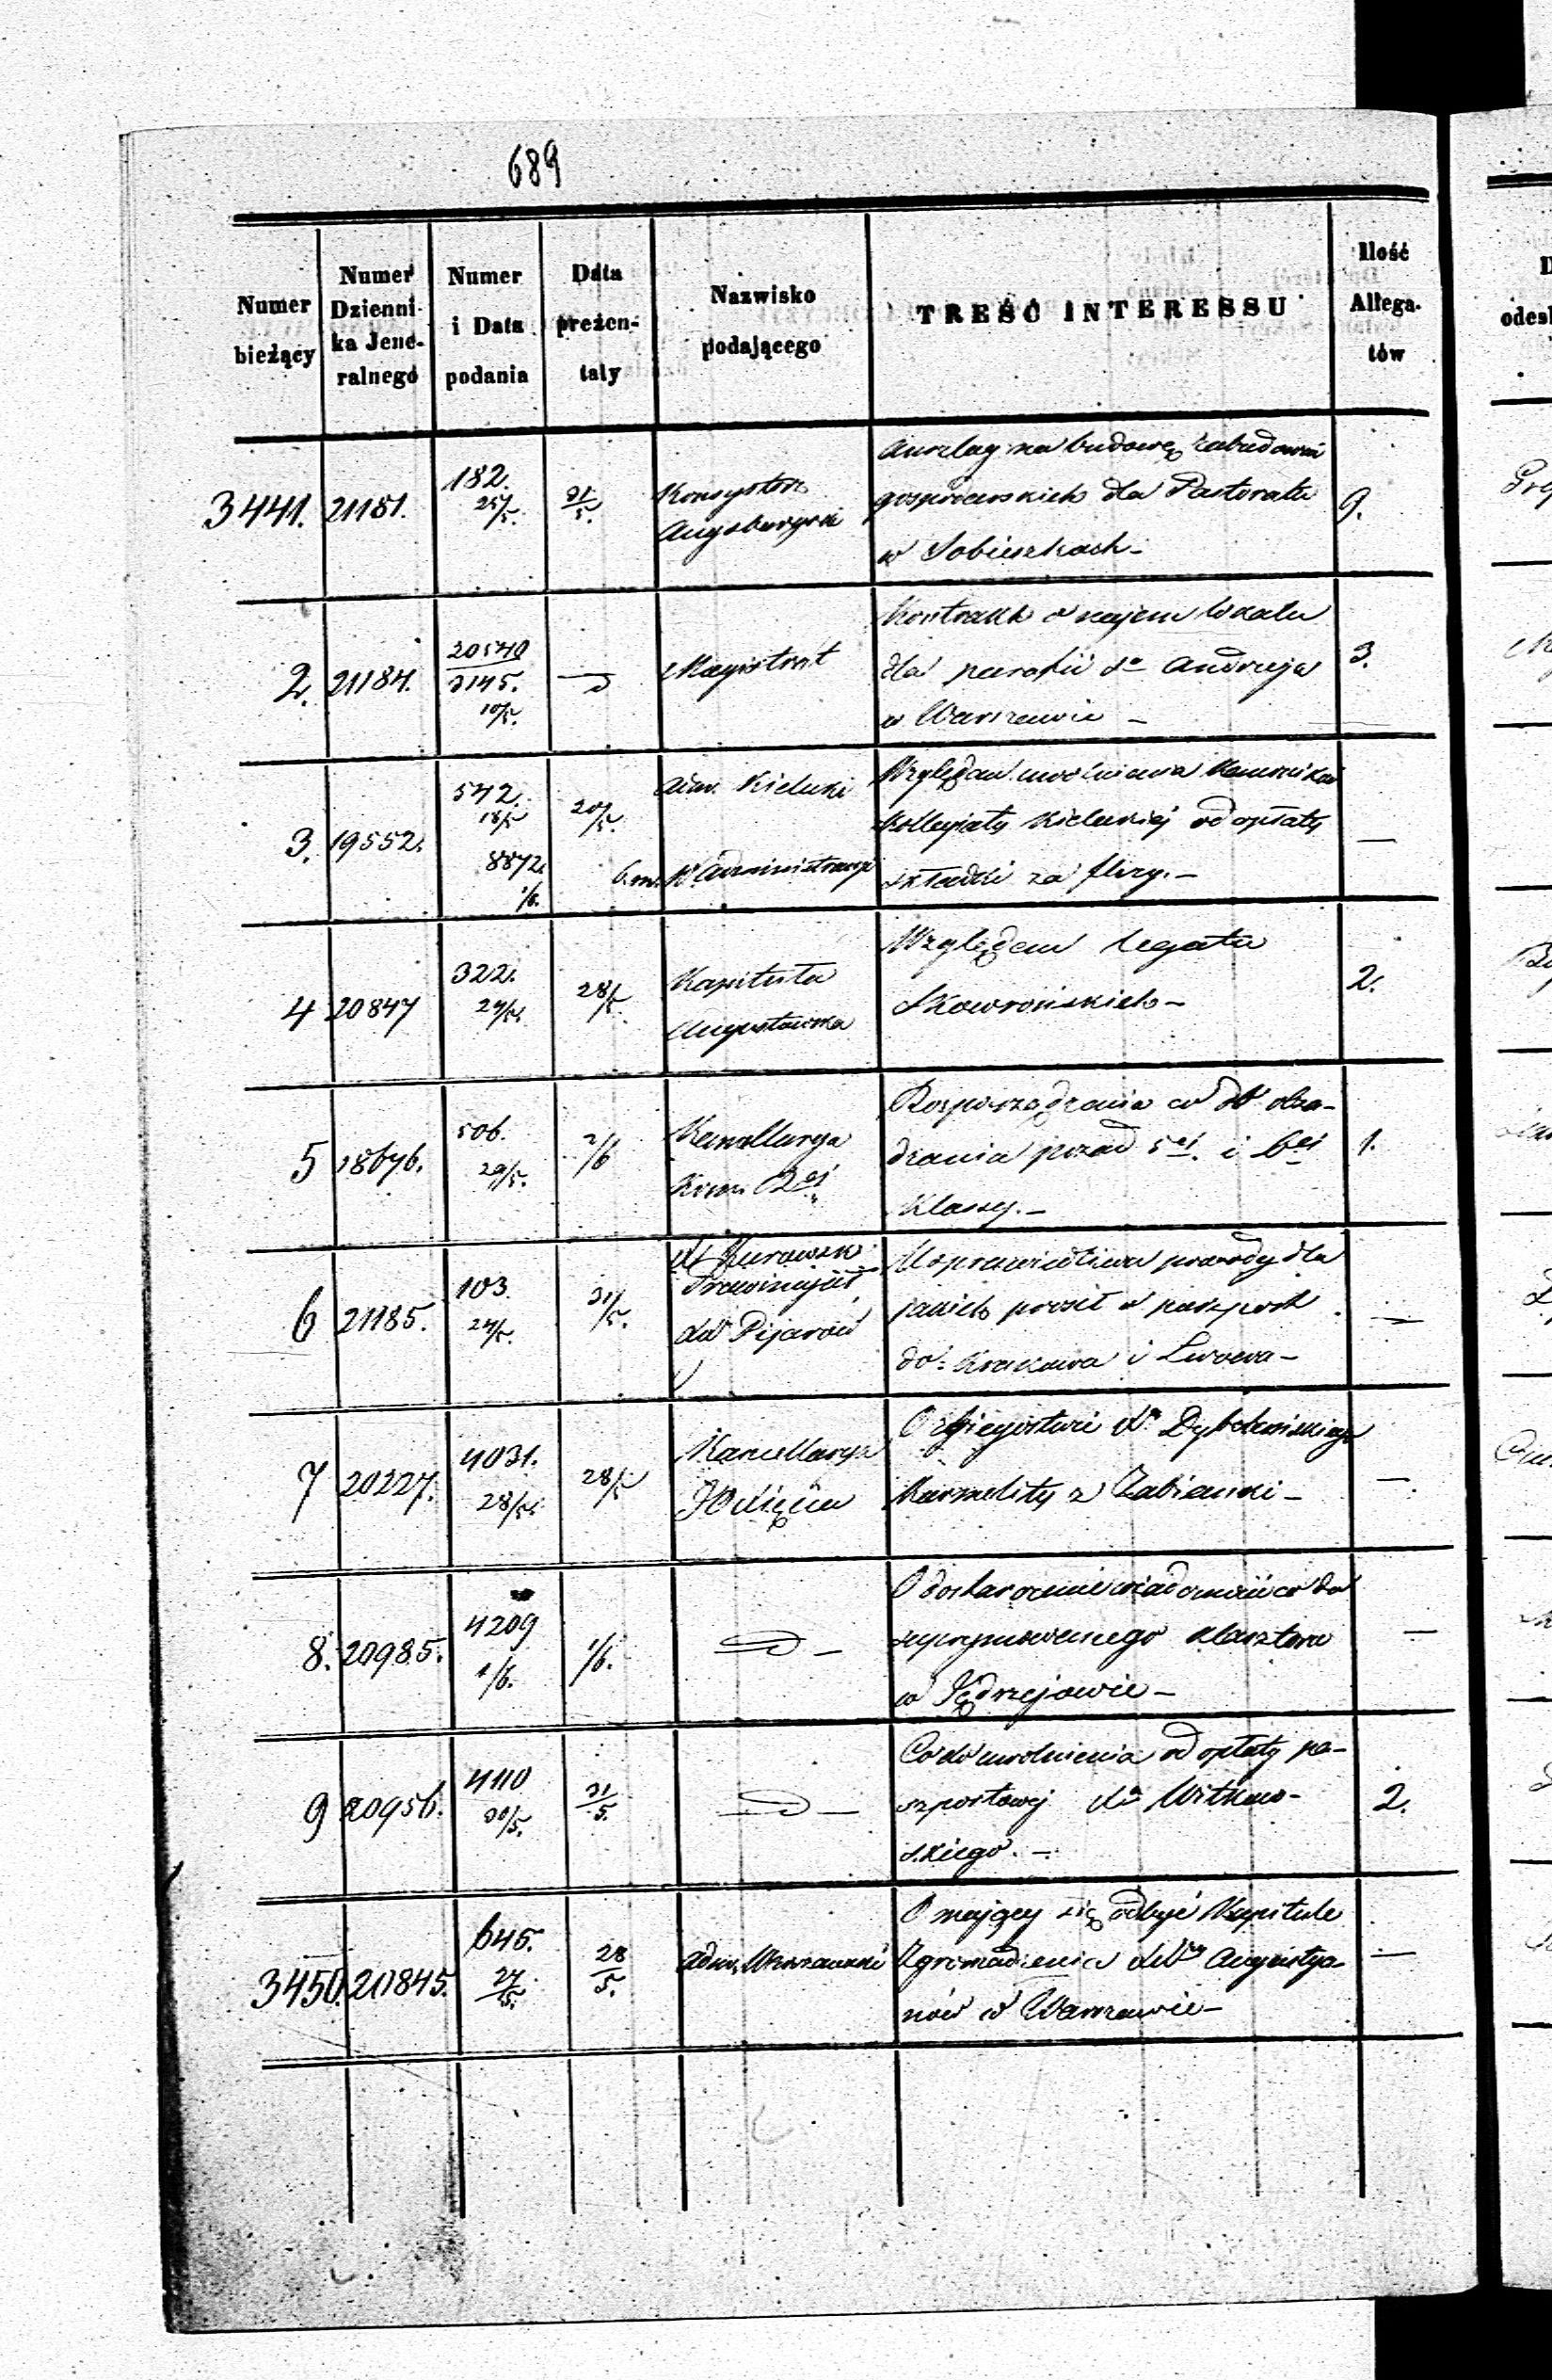 689
Numer bieżący
Numer Dzienni-ka Jene-ralnego
Numer i Data podania
Data prezen-taty
Nazwisko podającego
TREŚĆ INTERESSU
Ilość Allega-tów
3441. 21181. 182. 25/5. 31/5. Konsystorz
Augsburgski
Anszlag na budowę zabudowań
gospodarskich dla Pastoratu
w Sobieszkach - 9.
2. 21184. 20540
3145.
10/5.
Magistrat
Kontrakt o najem lokalu
dla parafii Sgo Andrzeja
w Warszawie - 3.
3. 19552. 542.
18/5
20/5.
8872.
1/6.
6. m.
Adm. Kielecki
Względem uwolnienia Kanoników
Kollegiaty Kieleckiej od opłaty
składki za - —
4 20847 322.
24/5.
28/5.
Kapituła
Augustowska
Względem legatu
Skowrońskich - 2.
5 18676. 506.
29/5.
2/6
Kancellarya
Kom. Rej
Rozporządzenia co do obsa-
dzania posad 5ej. i 6ej
Klassy. - 1.
6 21185. 103.
24/5.
31/5.
Prowincjał
XX Pijarów
Usprawiedliwia powody dla
jakich prosił o paszport
do Krakowa i Lwowa - —
7 20227. 4031.
28/5.
28/5
Kancellarya
JO Xięcia
Karmelity z - —
8. 20985. 4209
1/6.
1/6.
O dostarczenie wiadomości co do
supprymowanego klasztoru
w Jędrzejowie - —
9 20956. 4110
30/5.
31/5.
Co do uwolnienia od opłaty pa-
szportowej Xa Witkow-
skiego. - 2.
3450. 20845. 645.
27/5.
28/5.
Adm. Warszawski
O mającej się odbyć Kapitule
Zgromadzenia XX Augustya-
nów w Warszawie - —